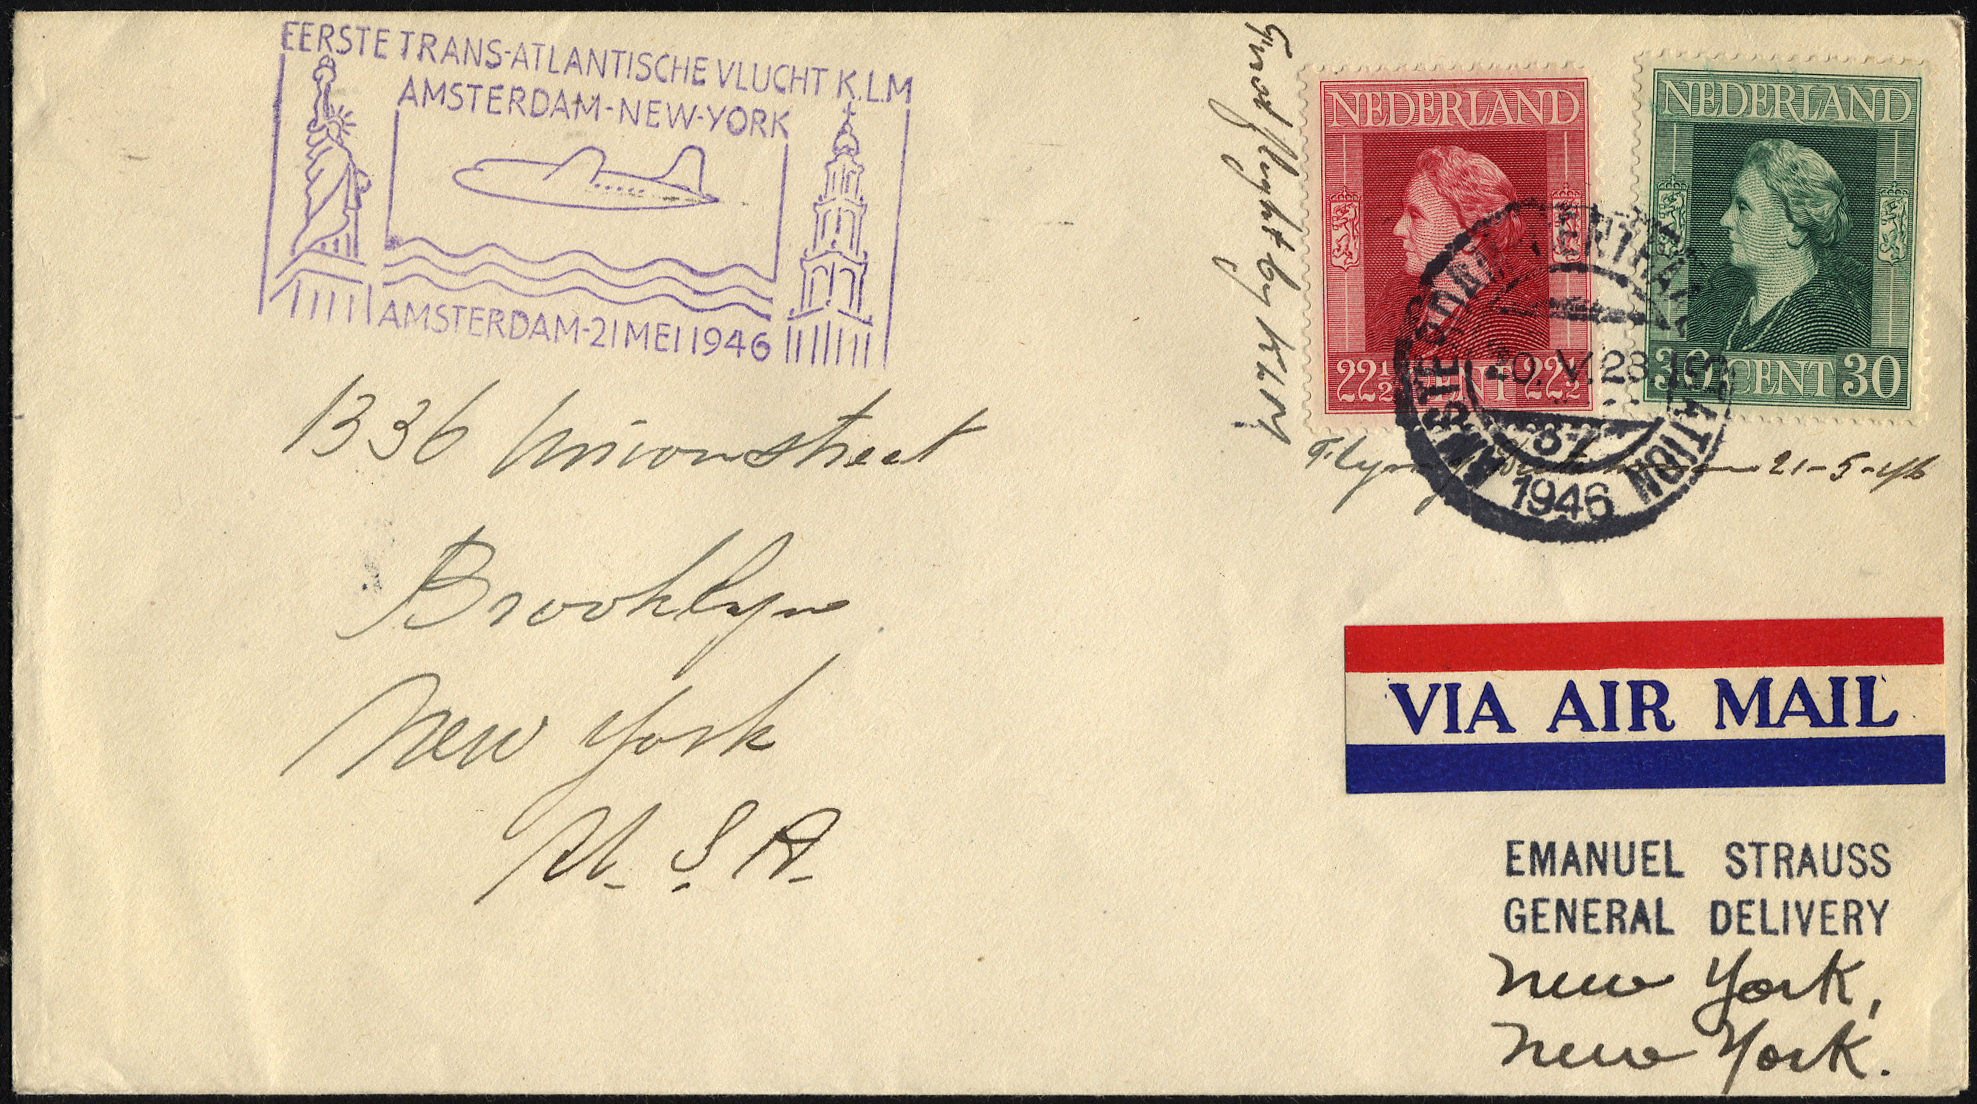 EERSTE TRANS-ATLANTISCHE VLUCHT K.L.M
AMSTERDAM-NEW-YORK
AMSTERDAM-21 MEI 1946
First flight by KLM
NEDERLAND
22½ CENT 22½
NEDERLAND
30 CENT 30
AMSTERDAM CENTRAAL STATION
20.V.23
37
1946
21-5-46
1336 Unionstreet
Brooklyn
New York
U.S.A.
VIA AIR MAIL
EMANUEL STRAUSS
GENERAL DELIVERY
New York,
New York.